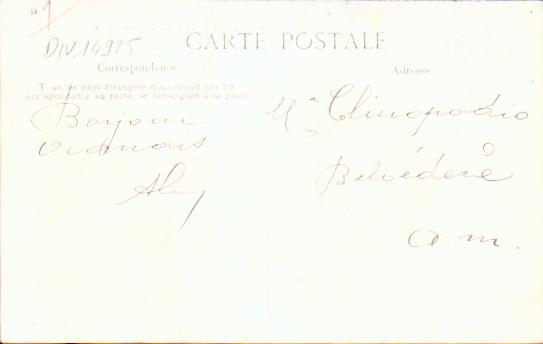 n 9
DIV14925
CARTE POSTALE
Correspondance
Adresse
Tous les pays étrangers n'acceptent pas la
correspondance au recto, se renseigner à la poste
Bonjour
Mr Clinopodio
Belvédère
a. m.